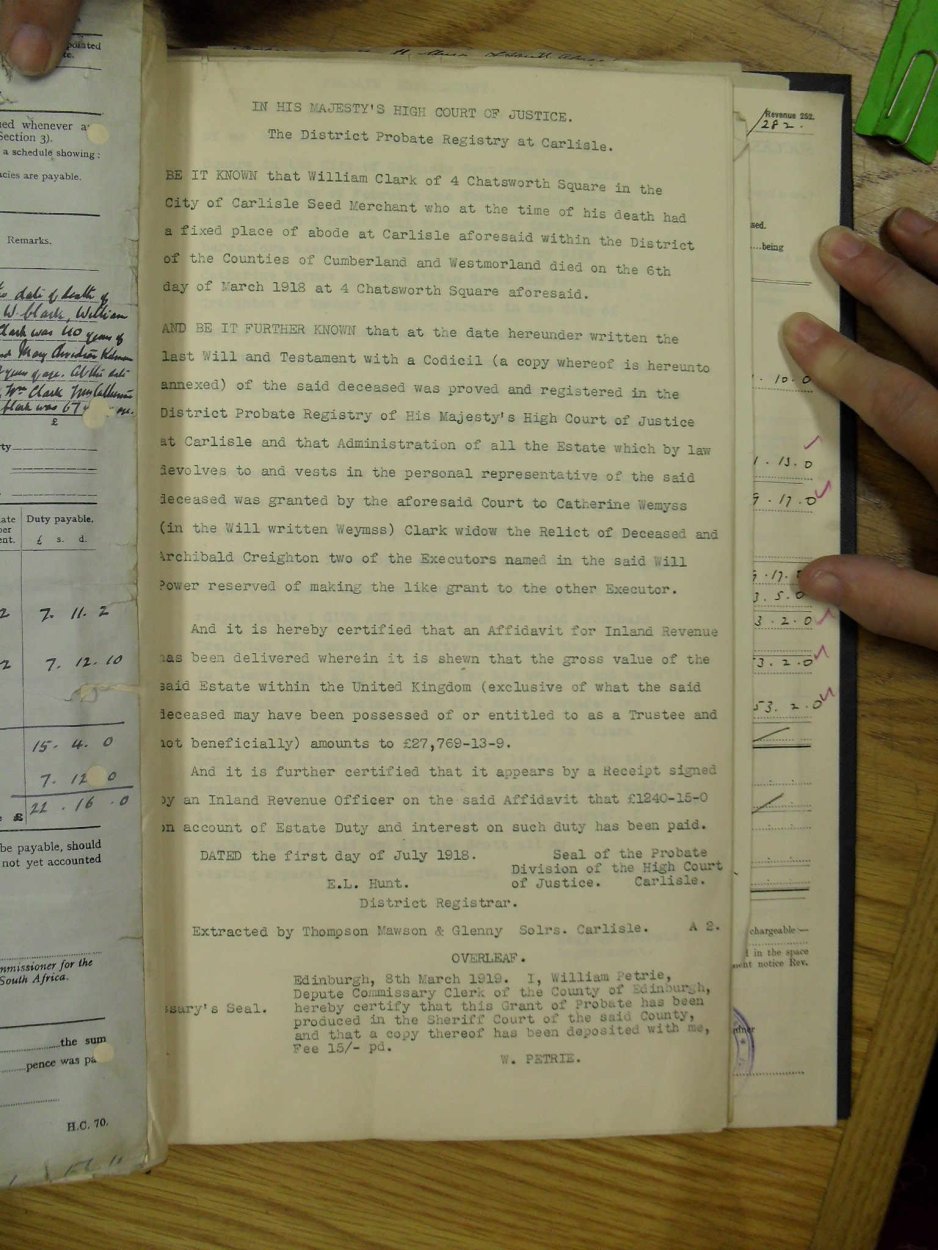 IN HIS MAJESTY'S HIGH COURT OF JUSTICE.
The District Probate Registry at Carlisle.
BE IT KNOWN that William Clark of 4 Chatsworth Square in the
City of Carlisle Seed Merchant who at the time of his death had
a fixed place of abode at Carlisle aforesaid within the District
of the Counties of Cumberland and Westmorland died on the 6th
day of March 1918 at 4 Chatsworth Square aforesaid.
AND BE IT FURTHER KNOWN that at the date hereunder written the
last Will and Testament with a Codicil (a copy whereof is hereunto
annexed) of the said deceased was proved and registered in the
District Probate Registry of His Majesty's High Court of Justice
at Carlisle and that Administration of all the Estate which by law
devolves to and vests in the personal representative of the said
deceased was granted by the aforesaid Court to Catherine Wemyss
(in the Will written Weymss) Clark widow the Relict of Deceased and
Archibald Creighton two of the Executors named in the said Will
Power reserved of making the like grant to the other Executor.
And it is hereby certified that an Affidavit for Inland Revenue
has been delivered wherein it is shewn that the gross value of the
said Estate within the United Kingdom (exclusive of what the said
deceased may have been possessed of or entitled to as a Trustee and
not beneficially) amounts to £27,769-13-9.
And it is further certified that it appears by a Receipt signed
by an Inland Revenue Officer on the said Affidavit that £1240-15-0
on account of Estate Duty and interest on such duty has been paid.
DATED the first day of July 1918. Seal of the Probate
Division of the High Court
E.L. Hunt. of Justice. Carlisle.
District Registrar.
Extracted by Thompson Mawson & Glenny Solrs. Carlisle. A 2.
OVERLEAF.
Edinburgh, 8th March 1919. I, William Petrie,
Depute Commissary Clerk of the County of Edinburgh,
ssary's Seal. hereby certify that this Grant of Probate has been
produced in the Sheriff Court of the said County,
and that a copy thereof has been deposited with me,
Fee 15/- pd.
W. PETRIE.
ued whenever a
Section 3).
a schedule showing:
cies are payable.
Remarks.
date of death of
W. Clark, William
Clark was 40 years of
years of age. At the date
Clark was 67
£
Duty payable.
£ s. d.
7. 11. 2
7. 12. 10
15. 4. 0
7. 12 0
£ 22. 16. 0
be payable, should
not yet accounted
mmissioner for the
South Africa.
the sum
pence was pa
H.C. 70.
Revenue 262.
282.
med.
being
10. 0
1. 13. 0
9. 17. 0
3. 5. 0
3. 2. 0
53. 2. 0
53. 2. 0
chargeable —
d in the space
ment notice Rev.